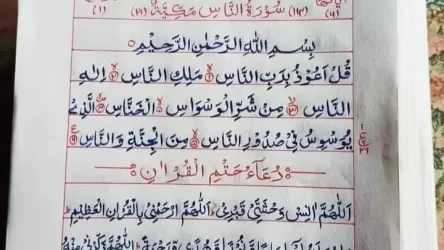 (٦) (١١٤) سُوْرَةُ النَّاسِ مَكِّيَّةٌ (٢١) (١)
بِسْمِ اللهِ الرَّحْمٰنِ الرَّحِيْمِ
قُلْ اَعُوْذُ بِرَبِّ النَّاسِ ۝١ مَلِكِ النَّاسِ ۝٢ اِلٰهِ
النَّاسِ ۝٣ مِنْ شَرِّ الْوَسْوَاسِ ۝ الْخَنَّاسِ ۝٤ الَّذِىْ
يُوَسْوِسُ فِىْ صُدُوْرِ النَّاسِ ۝٥ مِنَ الْجِنَّةِ وَالنَّاسِ ۝٦
دُعَآءِ خَتْمِ الْقُرْاٰنِ
اَللّٰهُمَّ اٰنِسْ وَحْشَتِىْ فِىْ قَبْرِىْ اَللّٰهُمَّ ارْحَمْنِىْ بِالْقُرْاٰنِ الْعَظِيْمِ